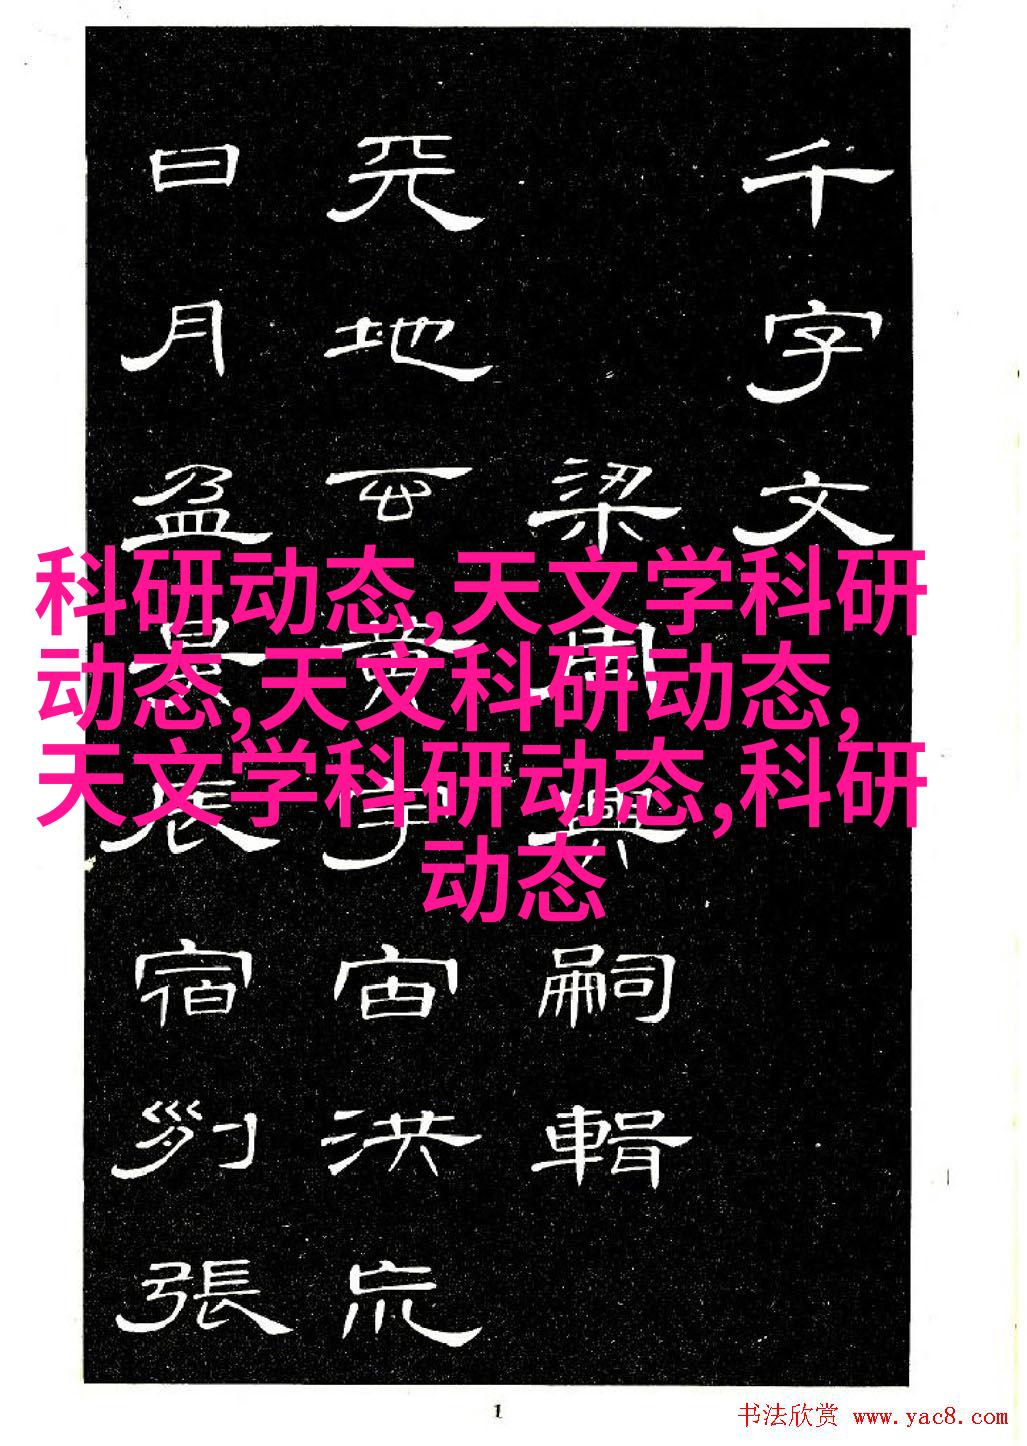 千字文
梁周興嗣輯
天地玄黃宇宙洪荒
日月盈昃辰宿列張
科研动态,天文学科研
动态,天文科研动态,
天文学科研动态,科研
动态
1
书法欣赏 www.yac8.com